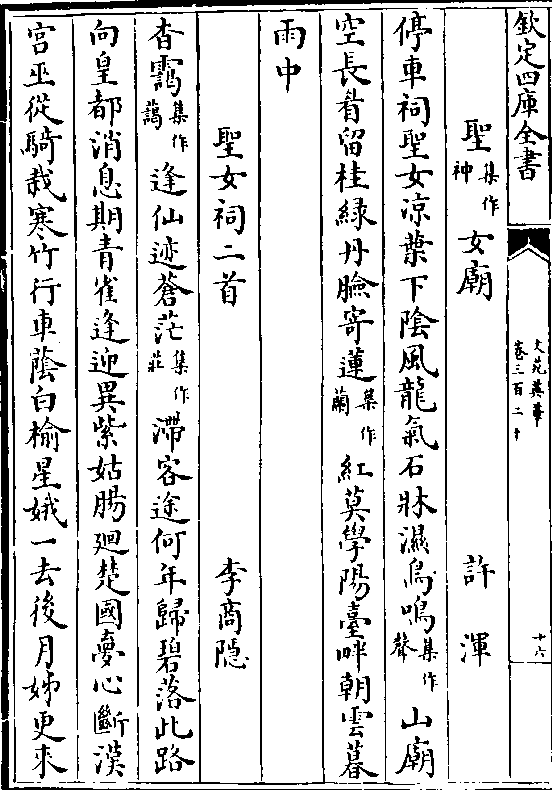 欽定四庫全書
文苑英華
卷三百二十
十六
聖集作神女廟 許渾
停車祠聖女凉葉下陰風龍氣石牀濕鳥鳴集作聲山廟
空長眉留桂綠丹臉寄蓮集作蘭紅莫學陽臺畔朝雲暮
雨中
聖女祠二首 李商隠
杳靄集作藹逢仙迹蒼茫集作莊滯客途何年歸碧落此路
向皇都消息期青雀逢迎異紫姑腸廻楚國夢心斷漢
宫巫從騎裁寒竹行車蔭白榆星娥一去後月姊更來